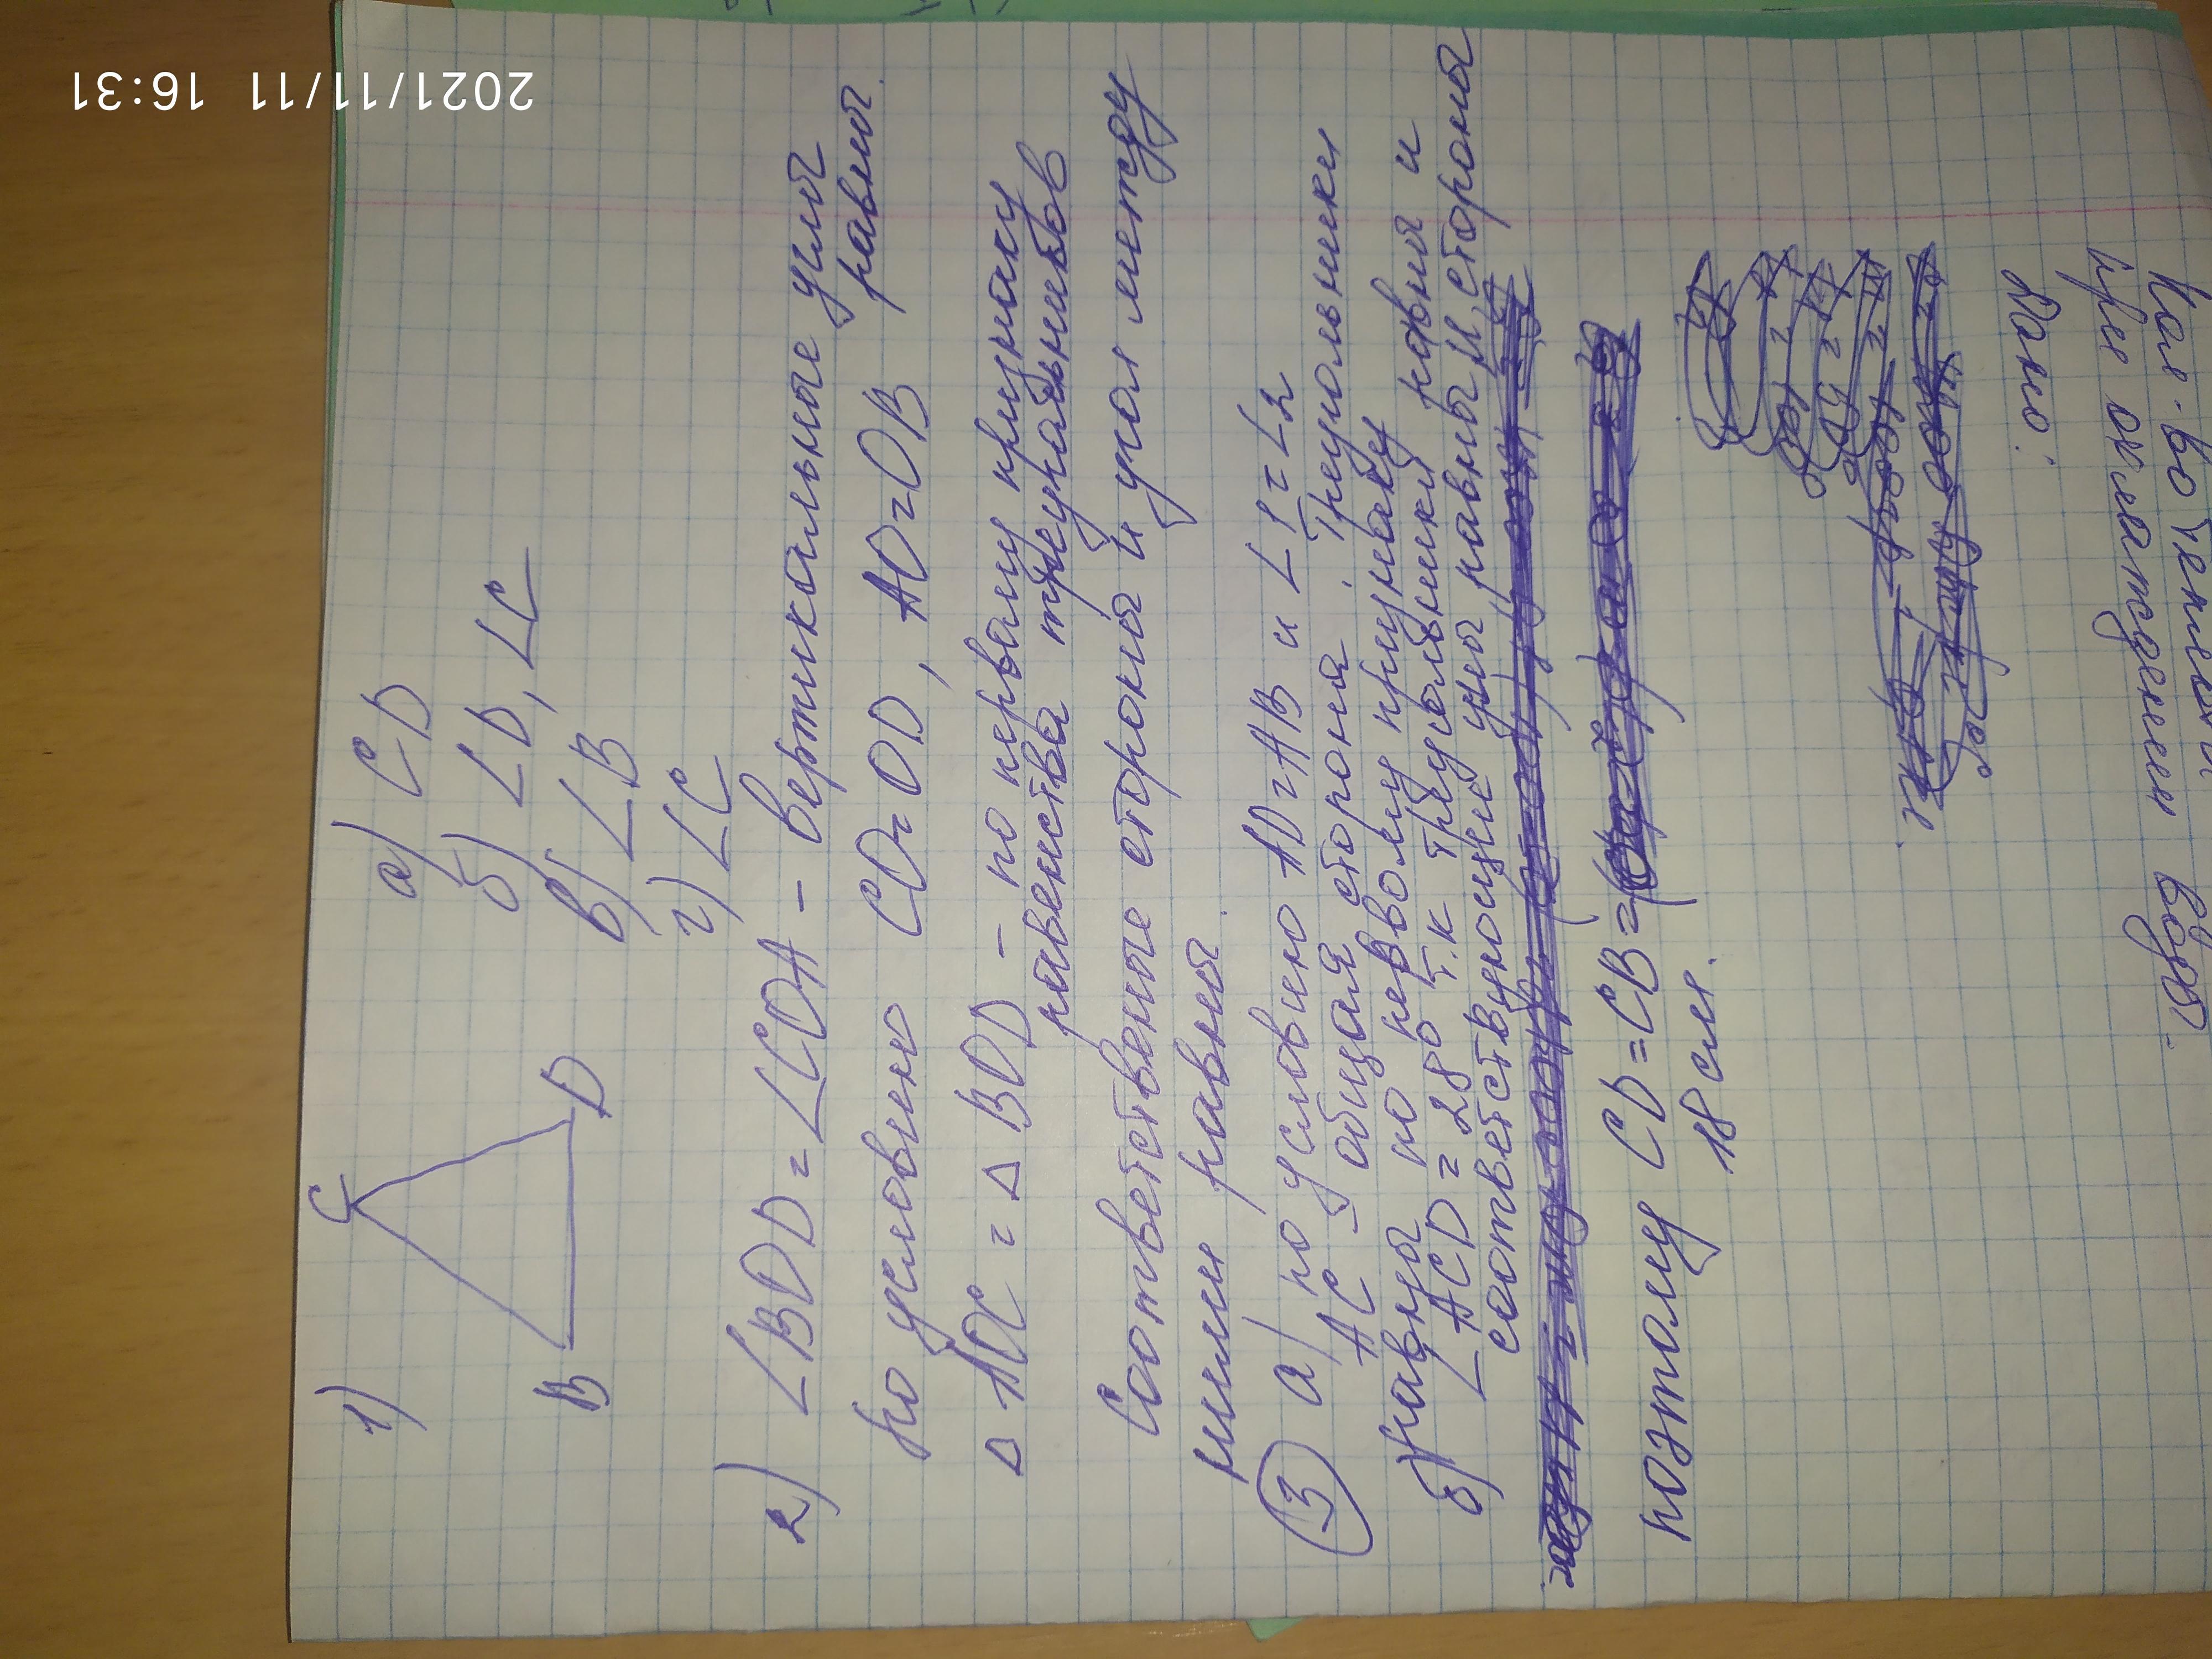 1)
C
B
D
а) CD
б) ∠D, ∠C
в) ∠B
г) ∠C
2) ∠BOD = ∠COA - вертикальные углы
равны.
По условию CO = OD, AO = OB
△ AOC = △ BOD - по первому признаку
равенства треугольников
Соответственые стороны и угол между
ними равны.
3) а) по условию AD = AB и ∠1 = ∠2
AC - общая сторона. Треугольники
равны по первому признаку
б) ∠ACD = 28° т.к треугольники равны и
соответствующие углы равны и стороны
поэтому CD = CB =
18 см.
Дано:
при охлаждении воды.
Кол-во теплоты
2021/11/11 16:31